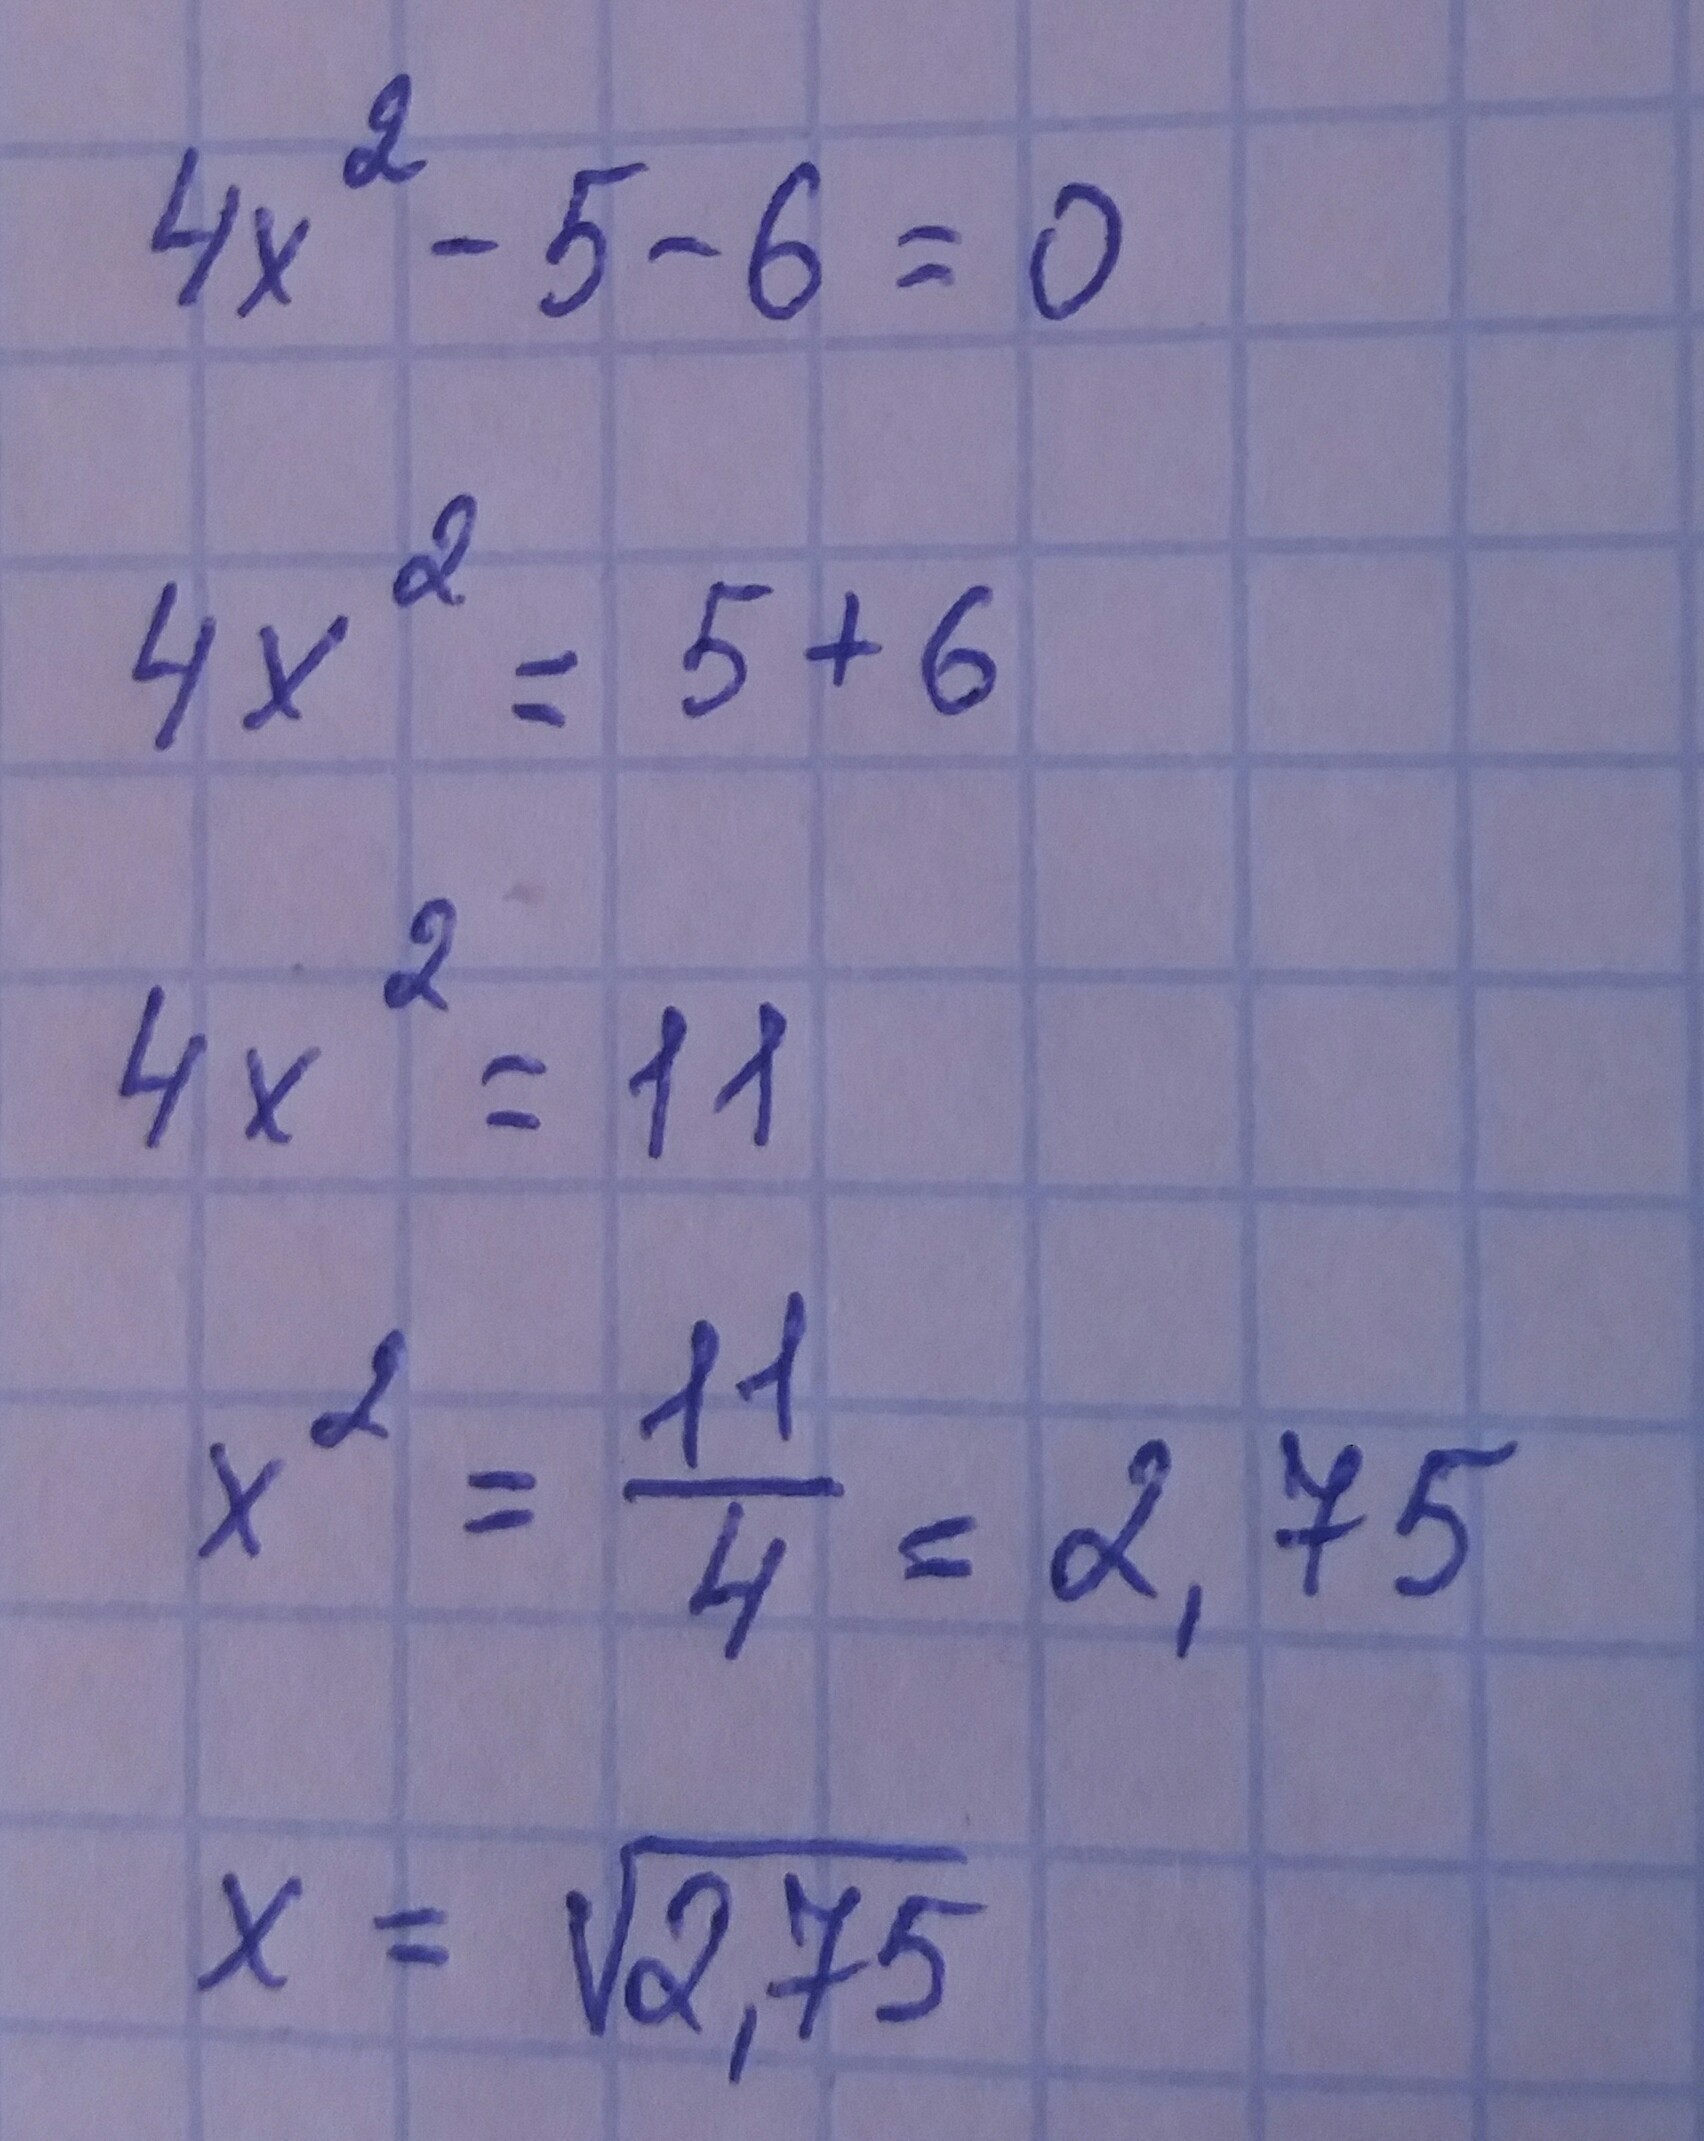 4x² - 5 - 6 = 0
4x² = 5 + 6
4x² = 11
x² = 11/4 = 2,75
x = √2,75